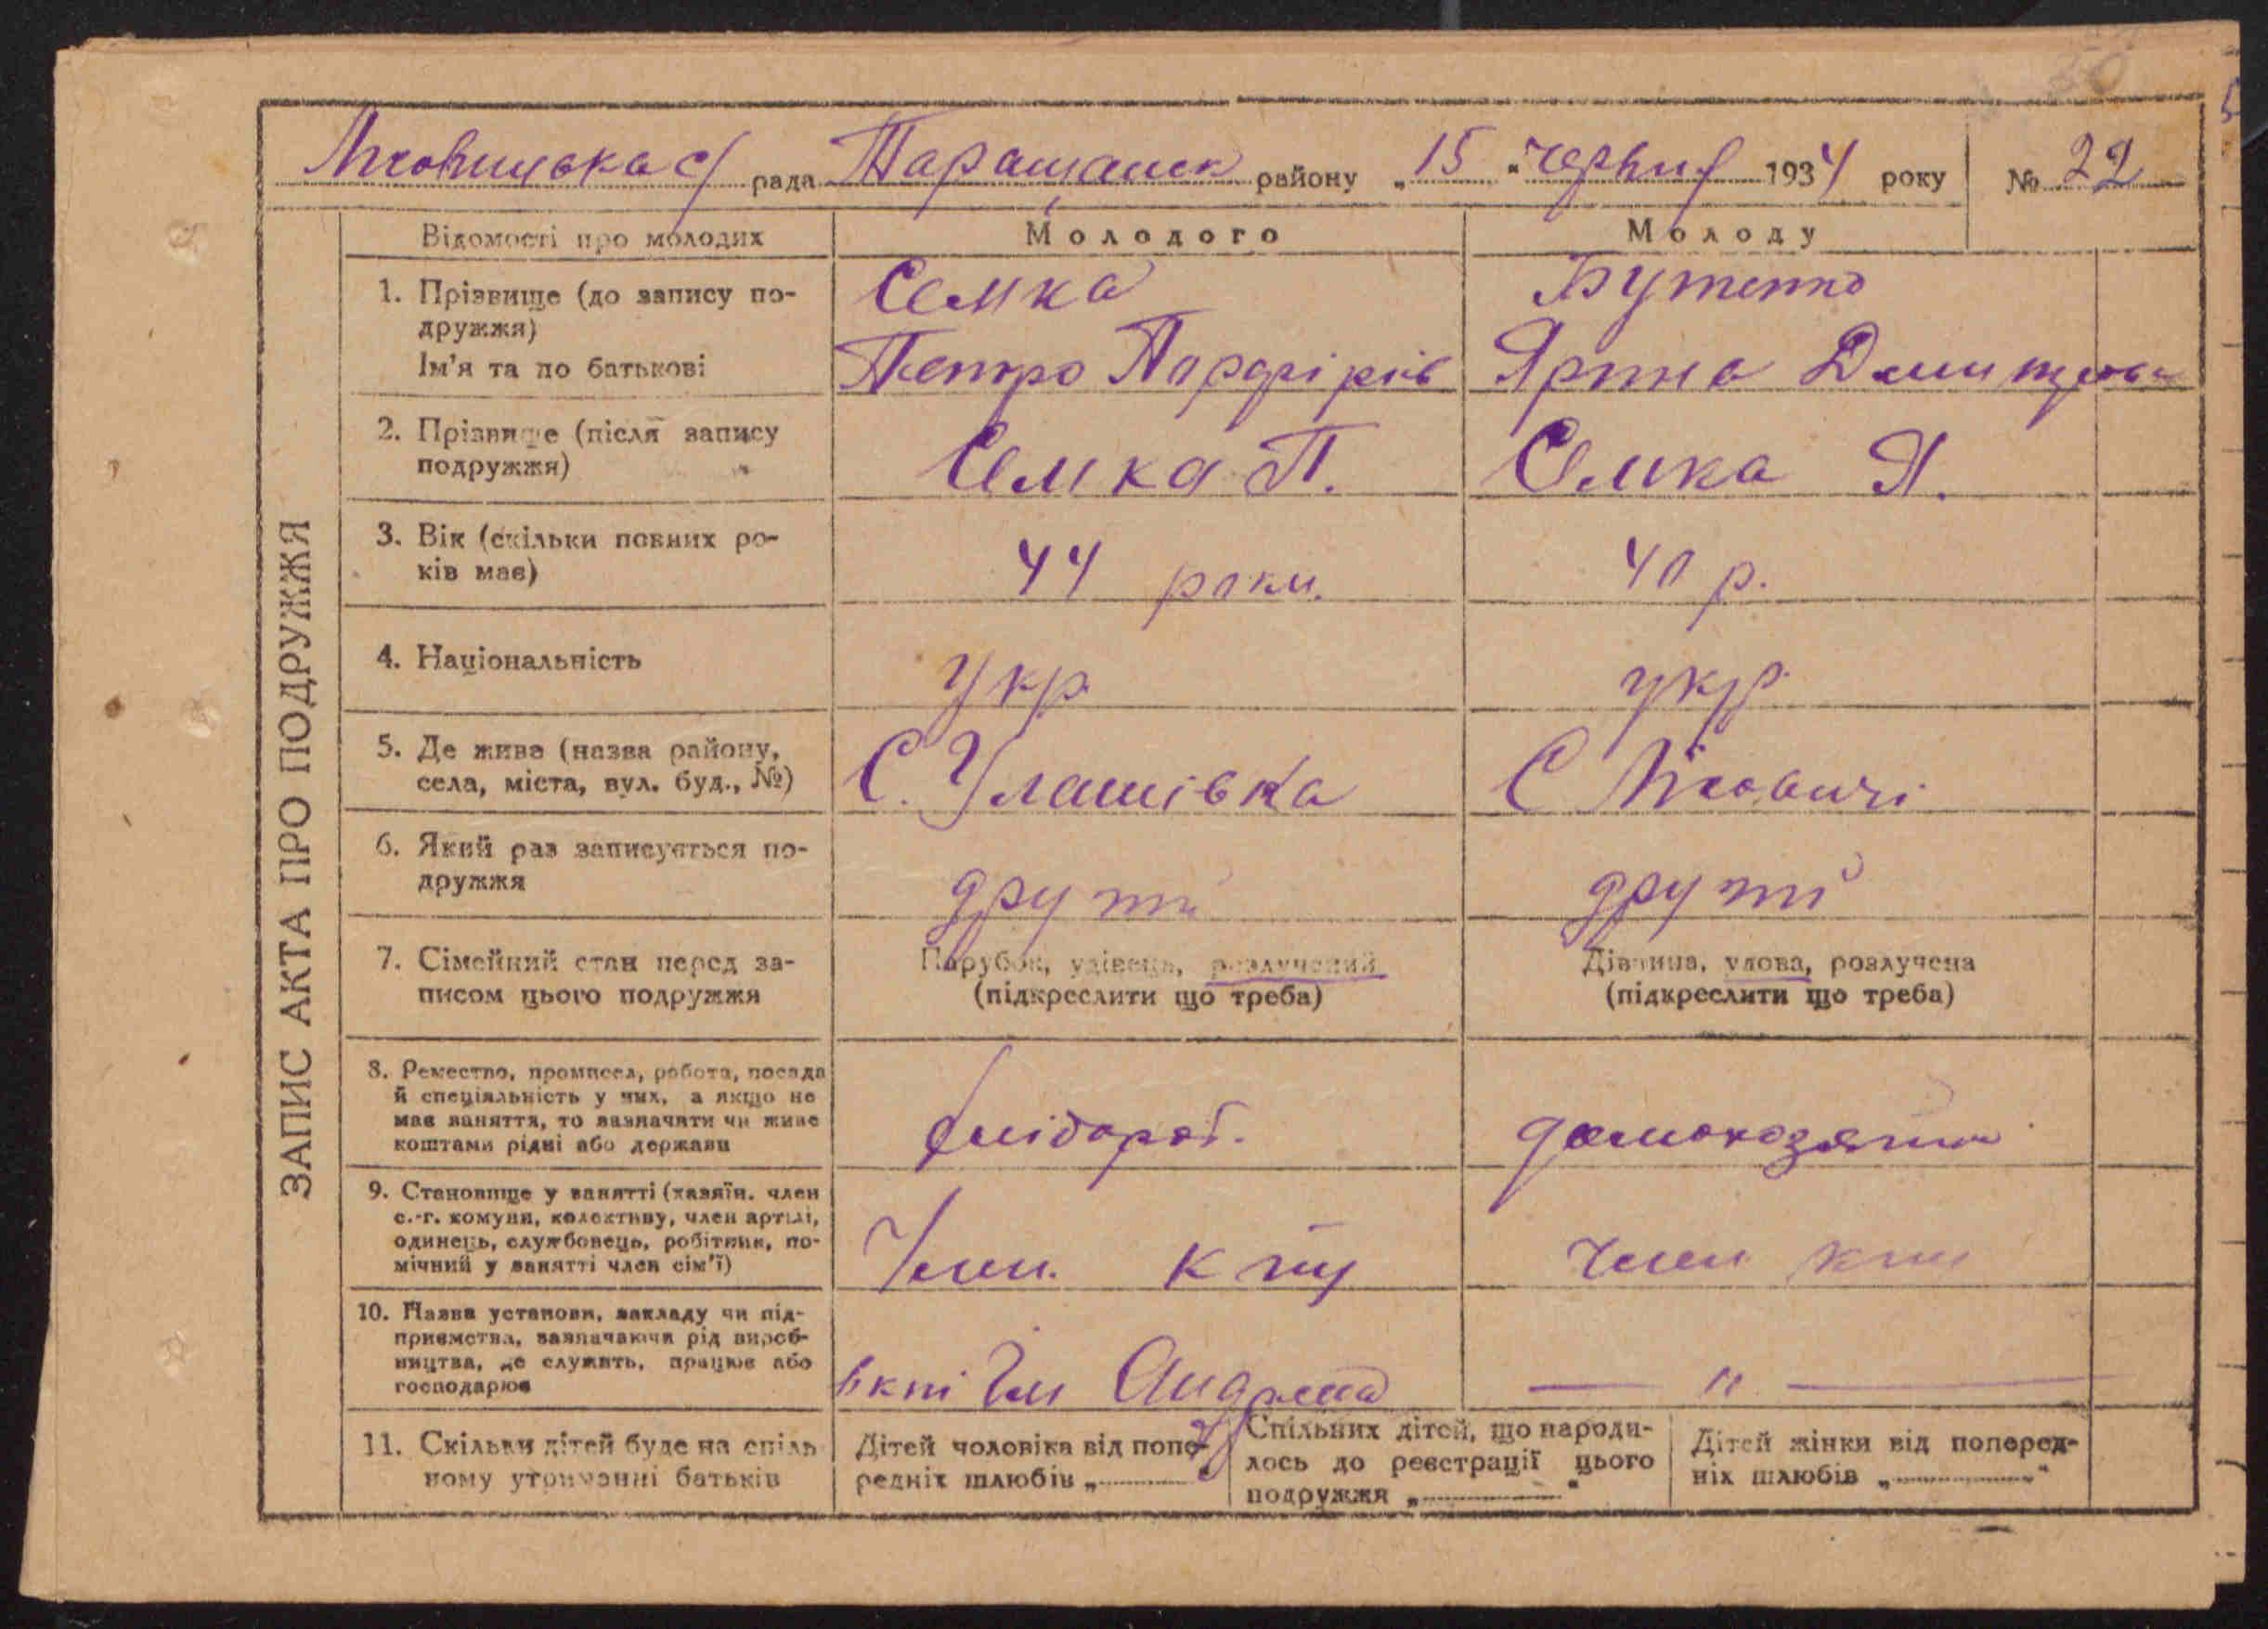 Лісовицька с/ рада Таращанськ району „15" червня 1934 року № 22
ЗАПИС АКТА ПРО ПОДРУЖЖЯ
Відомості про молодих Молодого Молоду
1. Прізвище (до запису по-
дружжя)
Ім'я та по батькові
Семка
Петро Парфірів
Бутенко
Ярина Дмитрова
2. Прізвище (після запису
подружжя)
Семка П.
Семка Я.
3. Вік (скільки повних ро-
ків має)
44 роки.
40 р.
4. Національність
Укр
укр.
5. Де живе (назва району,
села, міста, вул. буд., №)
С. Улашівка
С Лісовичі
6. Який раз записується по-
дружжя
други
другий
7. Сімейний стан перед за-
писом цього подружжя
Парубок, удівець, розлучений
(підкреслити що треба)
Дівчина, удова, розлучена
(підкреслити що треба)
8. Ремество, промисел, робота, посада
й спеціяльність у них, а якщо не
має заняття, то зазначити чи живе
коштами рідні або держави
хлібороб.
9. Становище у занятті (хазяїн, член
с.-г. комуни, колективу, член артілі,
одинець, службовець, робітник, по-
мічний у занятті член сім'ї)
Член. кгу
член
10. Назва установи, закладу чи під-
приємства, зазначаючи рід вироб-
ництва, де служить, працює або
господарює
— " —
11. Скільки дітей буде на спіль
ному утриманні батьків
Дітей чоловіка від попе-
редніх шлюбів „
Спільних дітей, що народи-
лось до реєстрації цього
подружжя „ "
Дітей жінки від поперед-
ніх шлюбів „ "